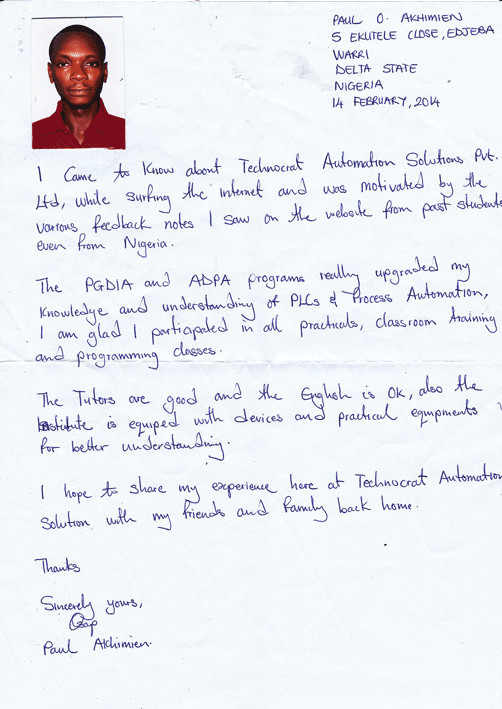 PAUL O. AKHIMIEN
5 EKUTELE CLOSE, EDJEBA
WARRI
DELTA STATE
NIGERIA
14 FEBRUARY, 2014
I Came to Know about Technocrat Automation Solutions Pvt.
Ltd, while surfing the internet and was motivated by the
various feedback notes I saw on the website from past students
even from Nigeria.
The PGDIA and ADPA programs really upgraded my
Knowledge and understanding of PLCs & Process Automation,
I am glad I participated in all practicals, classroom training
and programming classes.
The Tutors are good and the English is OK, also the
Institute is equiped with devices and practical equipments
for better understanding.
I hope to share my experience here at Technocrat Automation
Solution with my friends and family back home.
Thanks
Sincerely yours,
Paul Akhimien.